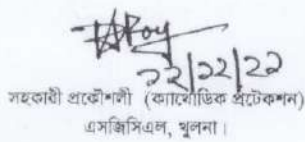 Roy
২২/১২/২২
সহকারী প্রকৌশলী (ক্যাথোডিক প্রটেকশন)
এসজিসিএল, খুলনা।